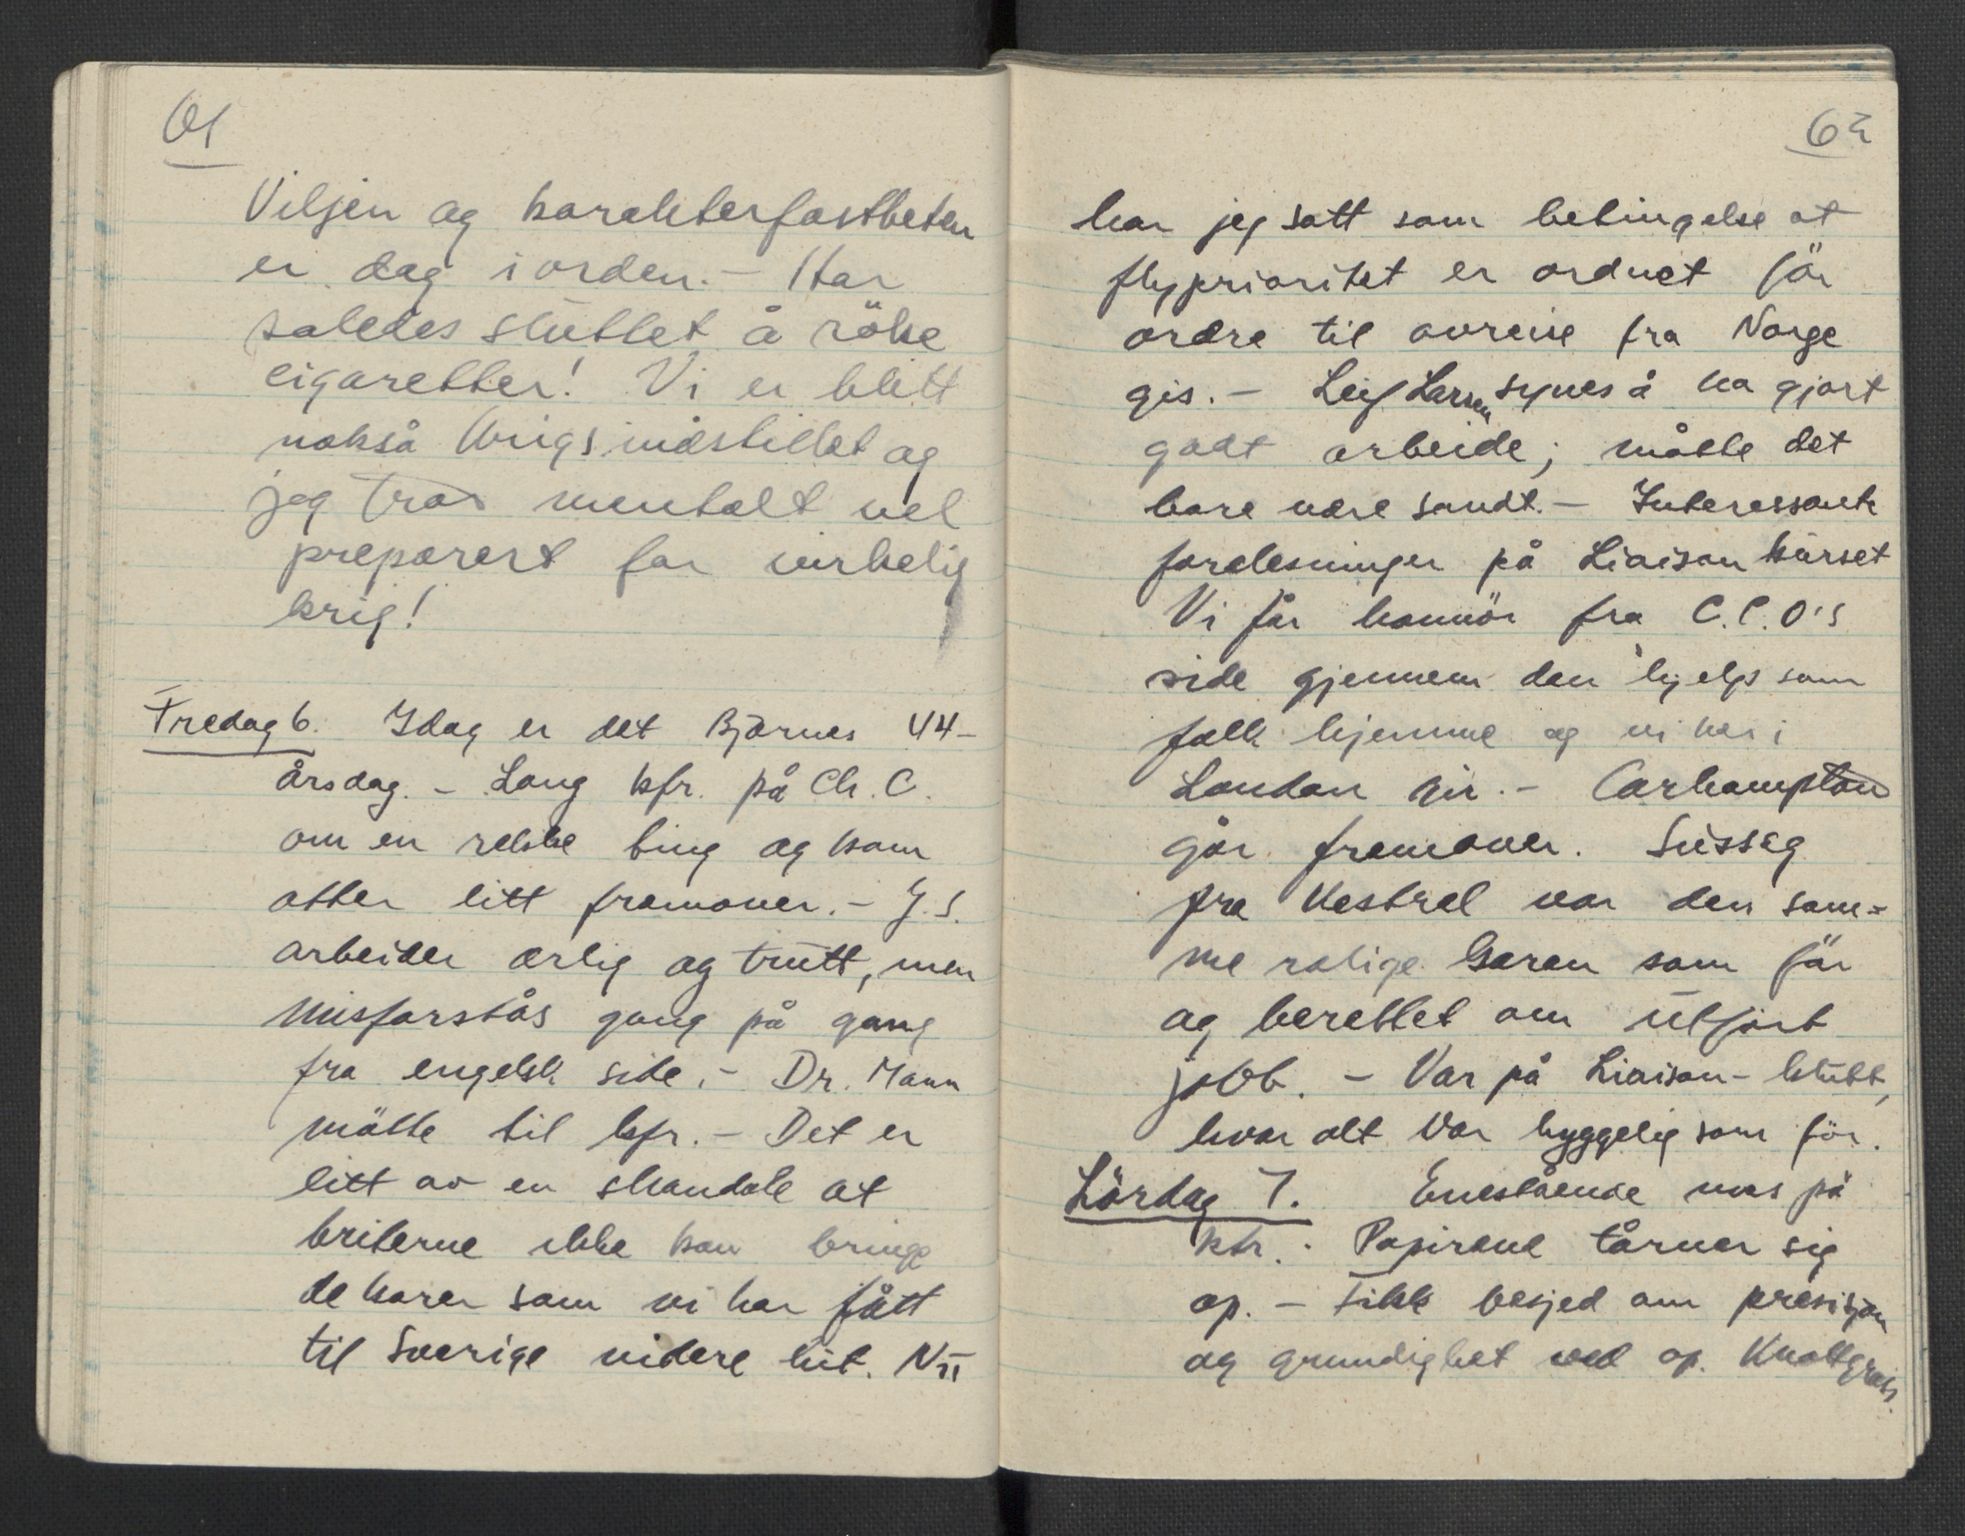 61
Viljen og karakterfastheten
er dag i orden. – Har
således sluttet å röke
cigaretter! Vi er blitt
nokså krigsindstillet og
jeg tror mentalt vel
preparert for virkelig
krig!
Fredag 6. Idag er det Bjarnes 44-
årsdag. – Lang kfr. på Ch. C.
om en rekke ting og kom
atter litt framover. – J.S.
arbeider ærlig og trutt, men
misforstås gang på gang
fra engelsk side. – Dr. Mann
måtte til kfr. – Det er
litt av en skandale at
briterne ikke kan bringe
de karer som vi har fått
til Sverige videre hit. Nu
62
har jeg satt som betingelse at
flyprioritet er ordnet för
ordre til avreise fra Norge
gis. – Leif Larsen synes å ha gjort
godt arbeide; måtte det
bare være sandt. – Interessante
forelesninger på Liaison kurset
Vi får honnör fra C.C.O's
side gjennem den hjelp som
folk hjemme og vi her i
London gir. – Carhampton
går fremover. Sussag
fra Kestrel var den sam-
me rolige karen som för
og berettet om utfört
jobb. – Var på Liaison-klubb,
hvor alt var hyggelig som för.
Lördag 7. Enestående mas på
ktr. Papirene tårner sig
op. – Fikk besjed om presisjon
og grundighet ved op. Knottgrass.